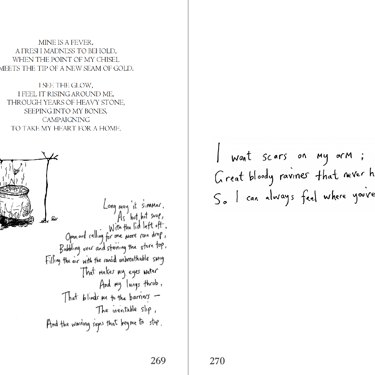 MINE IS A FEVER,
A FRESH MADNESS TO BEHOLD,
WHEN THE POINT OF MY CHISEL
MEETS THE TIP OF A NEW SEAM OF GOLD.
I SEE THE GLOW,
I FEEL IT RISING AROUND ME,
THROUGH YEARS OF HEAVY STONE,
SEEPING INTO MY BONES,
CAMPAIGNING
TO TAKE MY HEART FOR A HOME.
Long may it simmer,
As hot hot soup,
With the lid left off,
Open and calling for one more rain drop,
Bubbling over and staining the stove top,
Filling the air with the rancid unbreathable song
That makes my eyes water
And my lungs throb,
That blinds me to the barriers —
The inevitable slip,
And the warning signs that beg me to stop.
269
I want scars on my arm ;
Great bloody ravines that never h
So I can always feel where you've
270